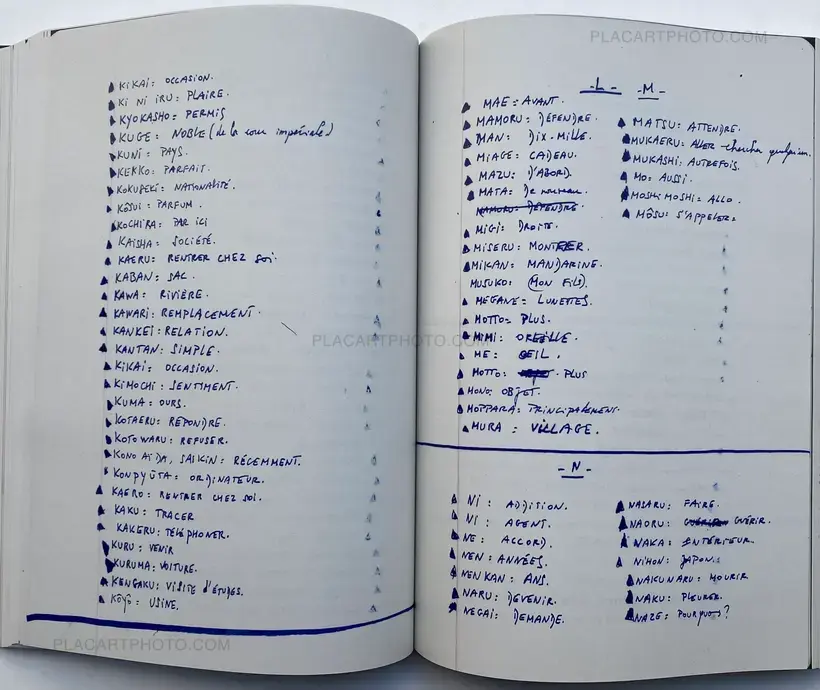 PLACARTPHOTO.COM
KIKAI: OCCASION.
KI NI IRU: PLAIRE.
KYOKASHO = PERMIS
KUGE: NOBLE (de la cour impériale)
KUNI: PAYS.
KEKKO: PARFAIT.
KOKUSEKI: NATIONALITÉ.
KÔSUI: PARFUM.
KOCHIRA: PAR ICI
KAISHA: SOCIÉTÉ.
KAERU: RENTRER CHEZ SOI.
KABAN: SAC.
KAWA: RIVIÈRE.
KAWARI: REMPLACEMENT.
KANKEI: RELATION.
KANTAN: SIMPLE.
KIKAI: OCCASION.
KIMOCHI: SENTIMENT.
KUMA: OURS.
KOTAERU: RÉPONDRE.
KOTOWARU: REFUSER.
KONO AIDA, SAIKIN: RÉCEMMENT.
KONPYÛTA: ORDINATEUR.
KAERO: RENTRER CHEZ SOI.
KAKU: TRACER
KAKERU: TÉLÉPHONER.
KURU: VENIR
KURUMA: VOITURE.
KENGAKU: VISITE D'ÉTUDES.
KÔYÔ: USINE.
-L- -M-
MAE: AVANT.
MAMORU: DÉFENDRE.
MAN: DIX-MILLE.
MIAGE: CADEAU.
MAZU: D'ABORD.
MATA: De nouveau.
MAMORU: DÉFENDRE
MIGI: DROITE.
MISERU: MONTRER.
MIKAN: MANDARINE.
MUSUKO: (MON FILS).
MEGANE: LUNETTES.
MOTTO: PLUS.
MIMI: OREILLE.
ME: OEIL.
MOTTO: PLUS
MONO: OBJET.
MOPPARA: PRINCIPALEMENT.
MURA: VILLAGE.
MATSU: ATTENDRE.
MUKAERU: ALLER chercher quelqu'un.
MUKASHI: AUTREFOIS.
MO: AUSSI.
MOSHI MOSHI: ALLO.
MÔSU: S'APPELER.
-N-
NI: ADDITION.
NI: AGENT.
NE: ACCORD.
NEN: ANNÉES.
NEN KAN: ANS.
NARU: DEVENIR.
NEGAI: DEMANDE.
NASARU: FAIRE.
NAORU: GUÉRIR.
NAKA: INTÉRIEUR.
NIHON: JAPON.
NAKUNARU: MOURIR
NAKU: PLEURER.
NAZE: POURQUOI?
PLACARTPHOTO.COM
PLACARTPHOTO.COM